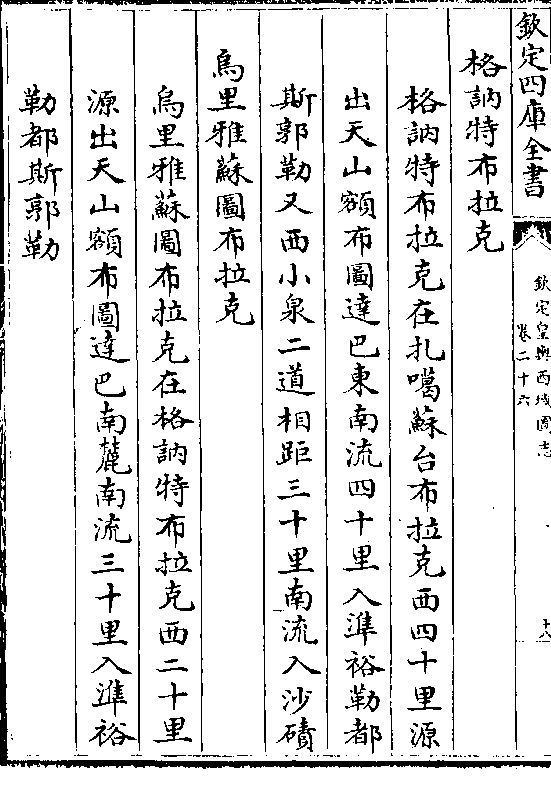 欽定四庫全書
欽定皇輿西域圖志
卷二十六
十八
格訥特布拉克
格訥特布拉克在扎噶蘇台布拉克西四十里源
出天山額布圖達巴東南流四十里入準裕勒都
斯郭勒又西小泉二道相距三十里南流入沙磧
烏里雅蘇圖布拉克
烏里雅蘇圖布拉克在格訥特布拉克西二十里
源出天山額布圖達巴南麓南流三十里入準裕
勒都斯郭勒